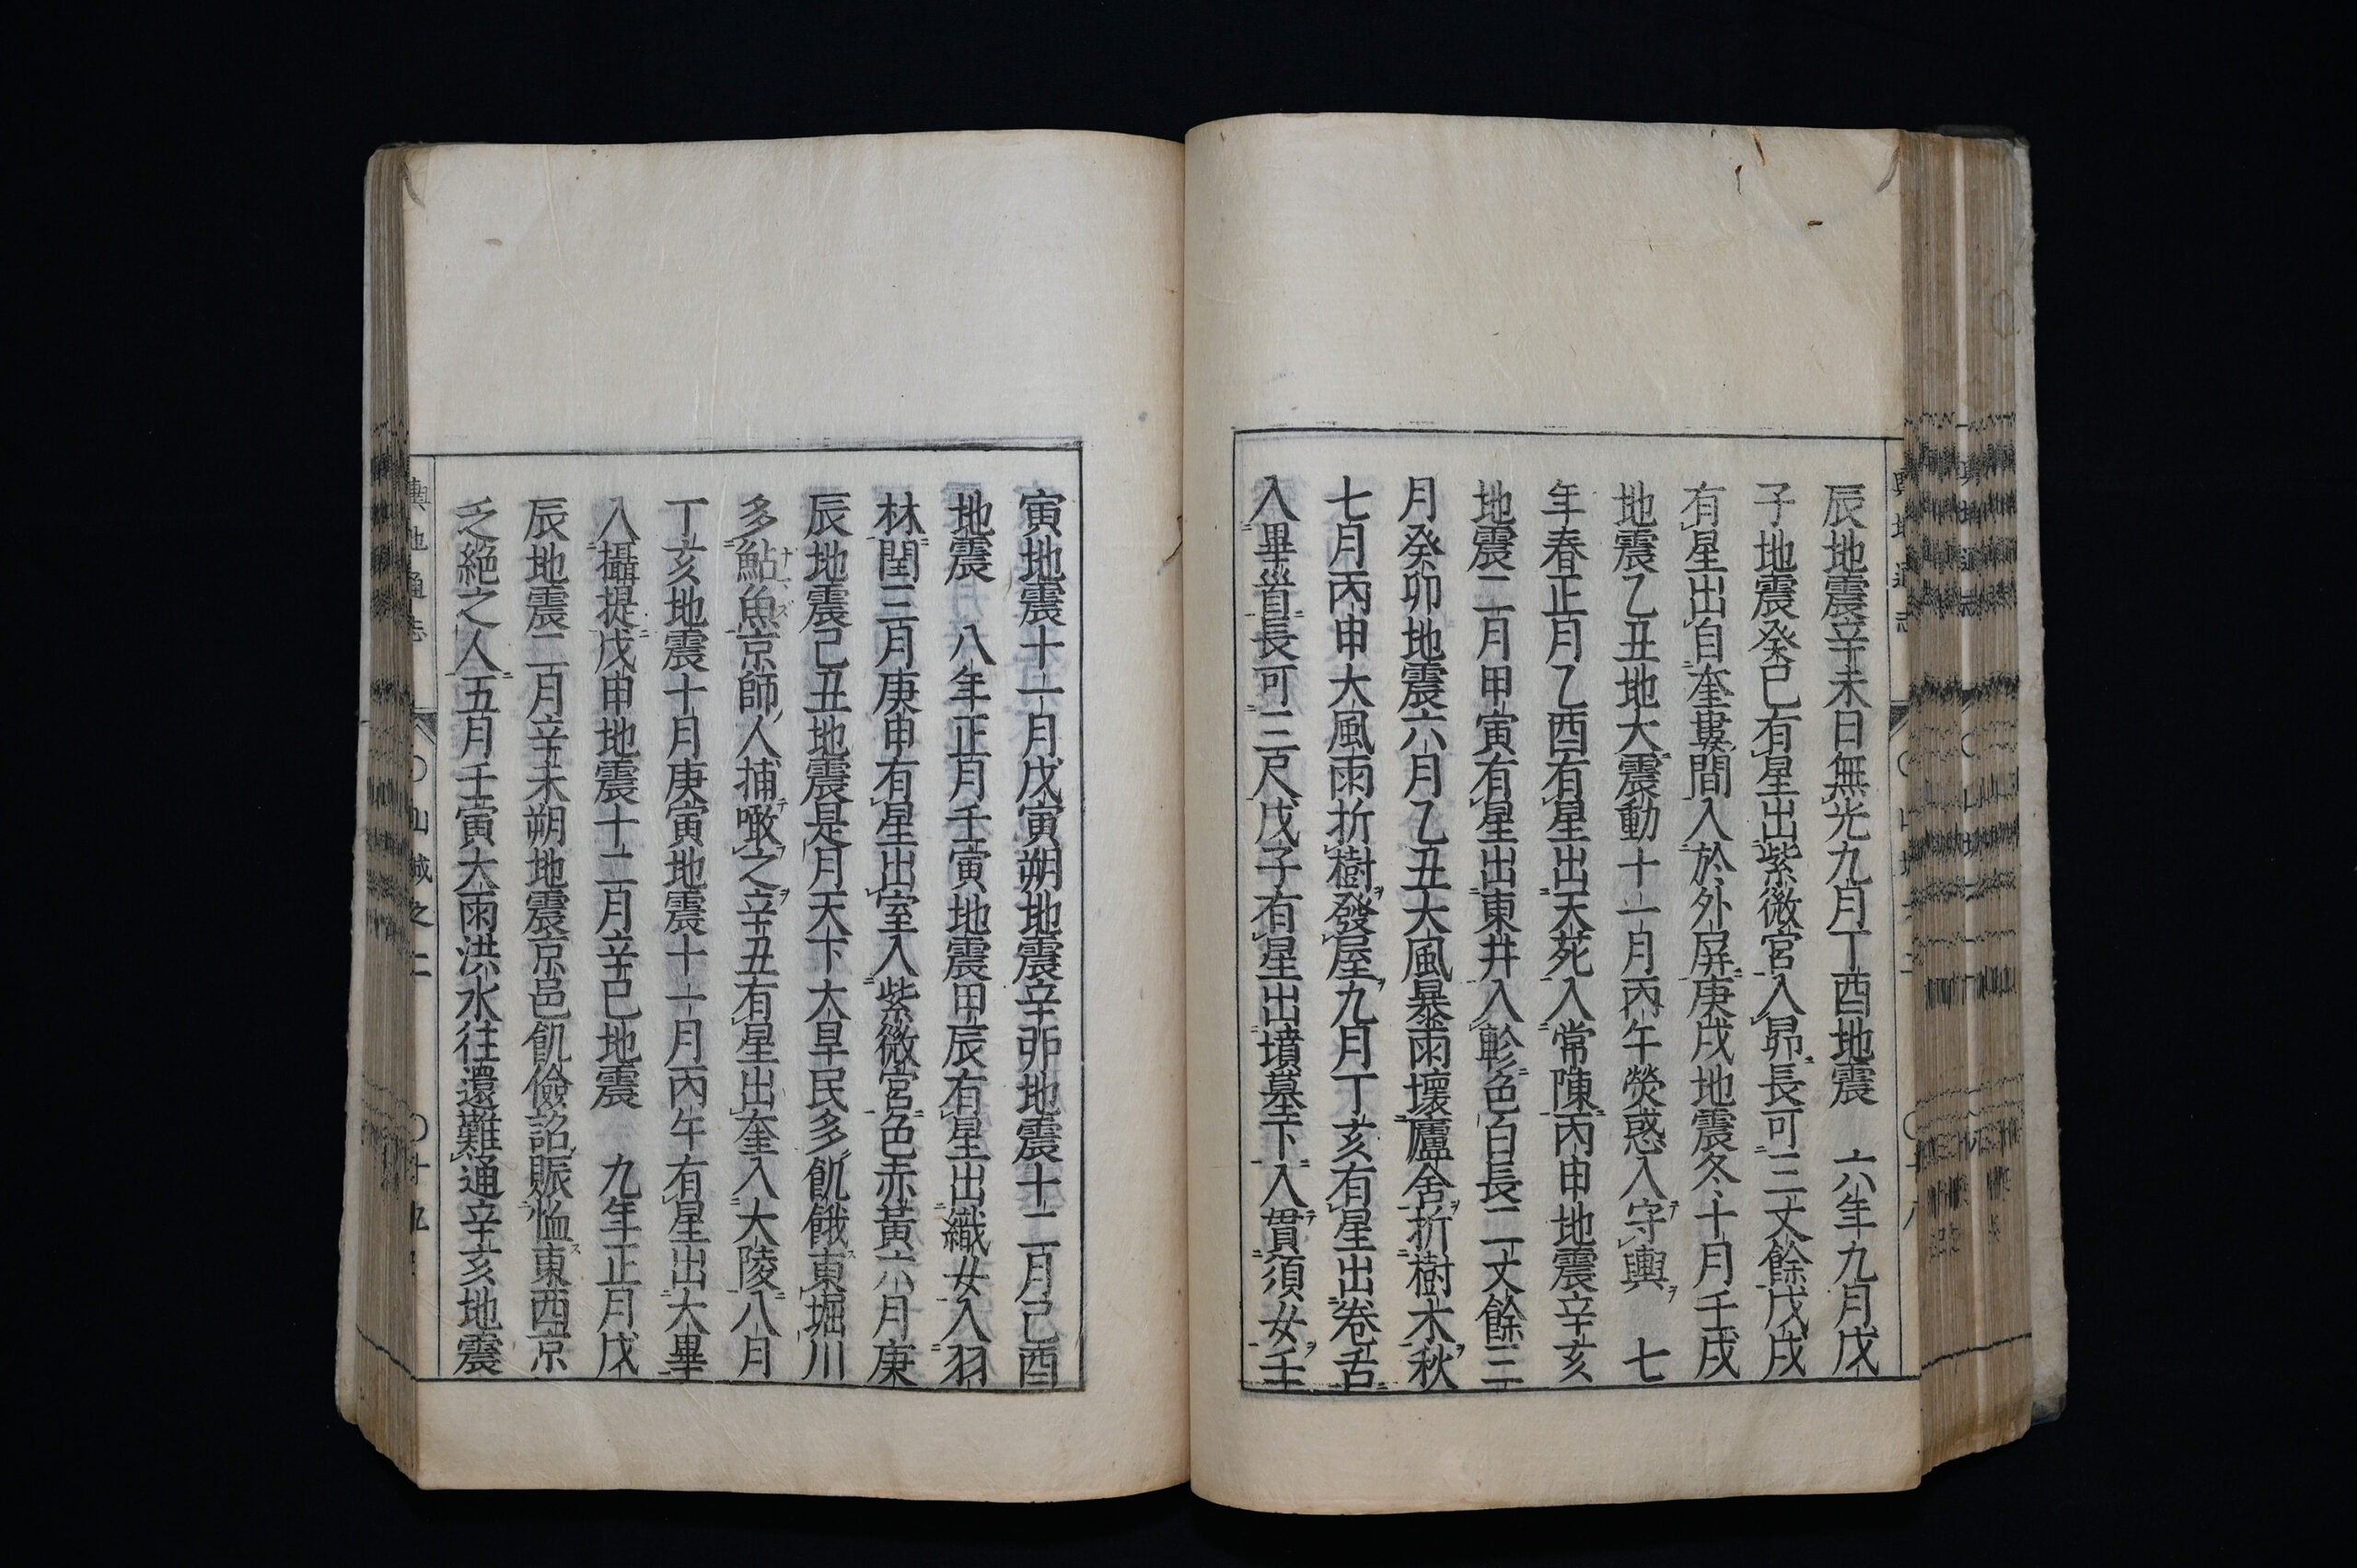 辰地震辛未日無光九月丁酉地震　六年九月戊
子地震癸巳有星出紫微宮入昴長可三丈餘戊戌
有星出自奎婁間入於外屏庚戌地震冬十月壬戌
地震乙丑地大震動十一月丙午熒惑入守輿　七
年春正月乙酉有星出天苑入常陳丙申地震辛亥
地震二月甲寅有星出東井入軫色白長二丈餘三
月癸卯地震六月乙丑大風暴雨壞廬舍折樹木秋
七月丙申大風雨折樹發屋九月丁亥有星出卷舌
入畢首長可三尺戊子有星出墳墓下入貫須女壬
寅地震十一月戊寅朔地震辛卯地震十二月己酉
地震　八年正月壬寅地震甲辰有星出織女入羽
林閏三月庚申有星出室入紫微宮色赤黃六月庚
辰地震己丑地震是月天下大旱民多飢餓東堀川
多鮎魚京師人捕噉之辛丑有星出奎入大陵八月
丁亥地震十月庚寅地震十一月丙午有星出大畢
入攝提戊申地震十二月辛巳地震　九年正月戊
辰地震二月辛未朔地震京邑飢儉詔賑恤東西京
乏絕之人五月壬寅大雨洪水往還難通辛亥地震
輿地通志
山城之二
十九